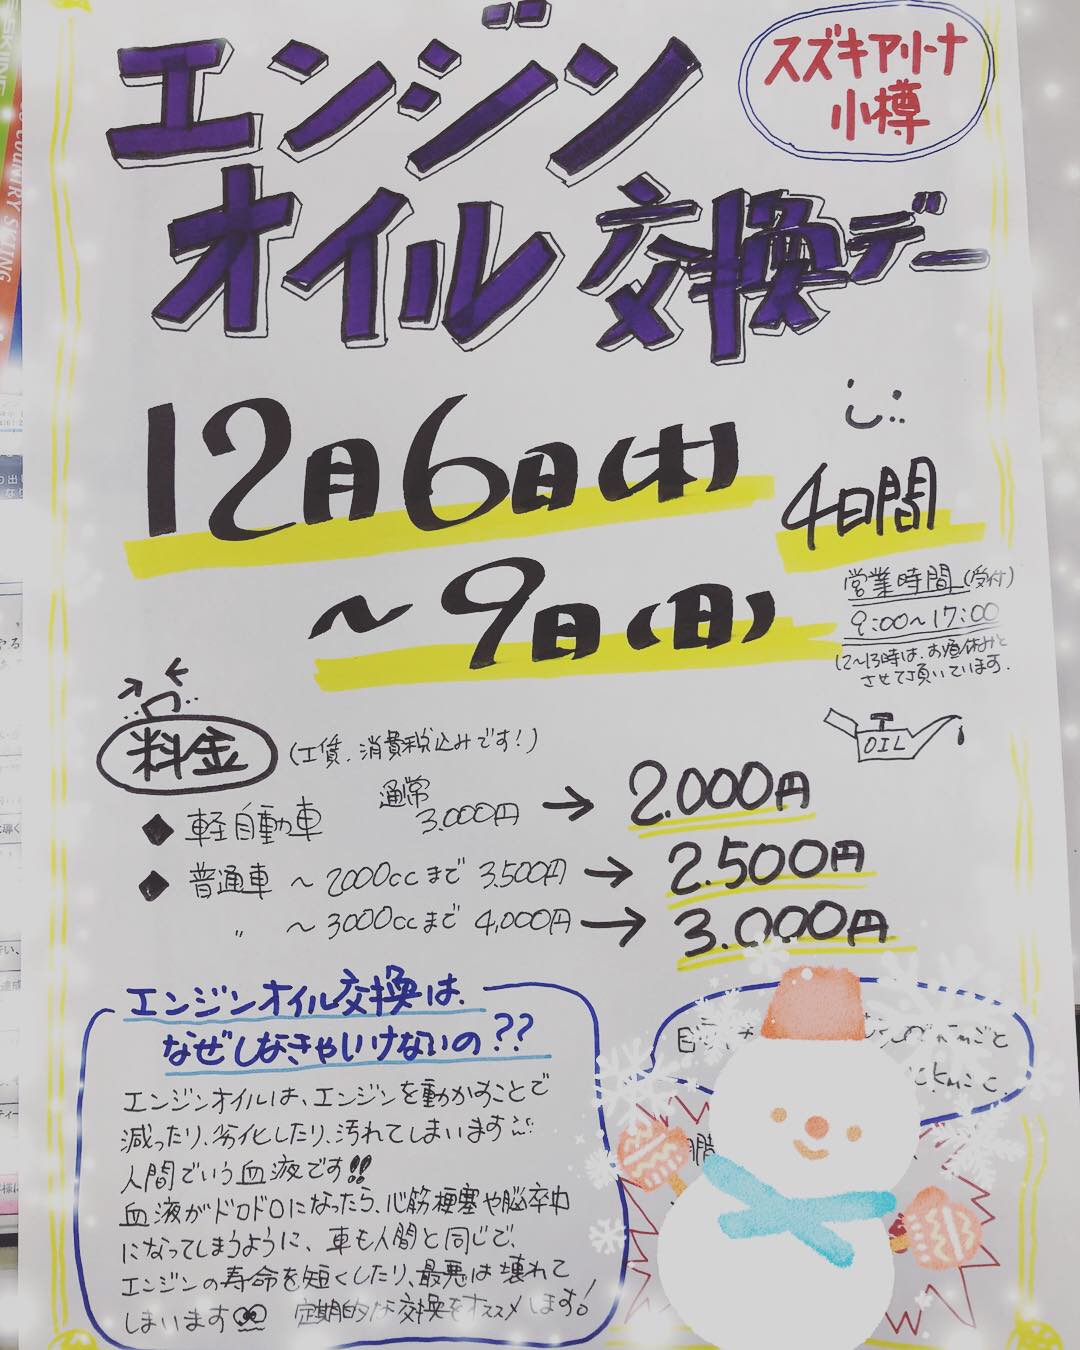 エンジン
スズキアリーナ
小樽
オイル交換デー
12月6日(木)
4日間
~9日(日)
営業時間(受付)
9:00~17:00
12~13時は、お昼休みと
させて頂いています.
OIL
料金 (工賃、消費税込みです!)
◆ 軽自動車 通常 3.000円 → 2.000円
◆ 普通車 ~2000ccまで 3.500円 → 2.500円
〃 ~3000ccまで 4,000円 → 3.000円
エンジンオイル交換は、
なぜしなきゃいけないの??
エンジンオイルは、エンジンを動かすことで
減ったり、劣化したり、汚れてしまいます
人間でいう血液です!!
血液がドロドロになったら、心筋梗塞や脳卒中
になってしまうように、車も人間と同じで、
エンジンの寿命を短くしたり、最悪は壊れて
しまいます 定期的な交換をオススメします!
COUNTRY SKIING